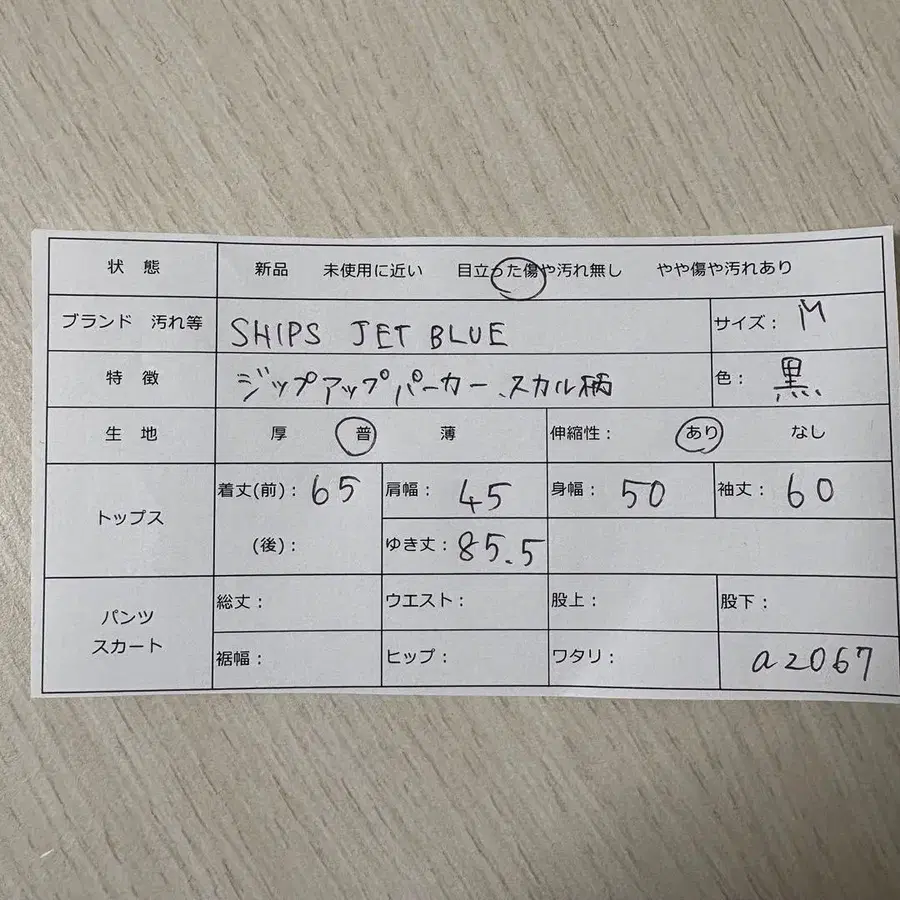 状 態 新品 未使用に近い 目立った傷や汚れ無し やや傷や汚れあり
ブランド 汚れ等 SHIPS JET BLUE サイズ： M
特 徴 ジップアップパーカー、スカル柄 色： 黒
生 地 厚 普 薄 伸縮性： あり なし
トップス 着丈(前)： 65 肩幅： 45 身幅： 50 袖丈： 60
(後)： ゆき丈： 85.5
パンツ スカート 総丈： ウエスト： 股上： 股下：
裾幅： ヒップ： ワタリ： a2067